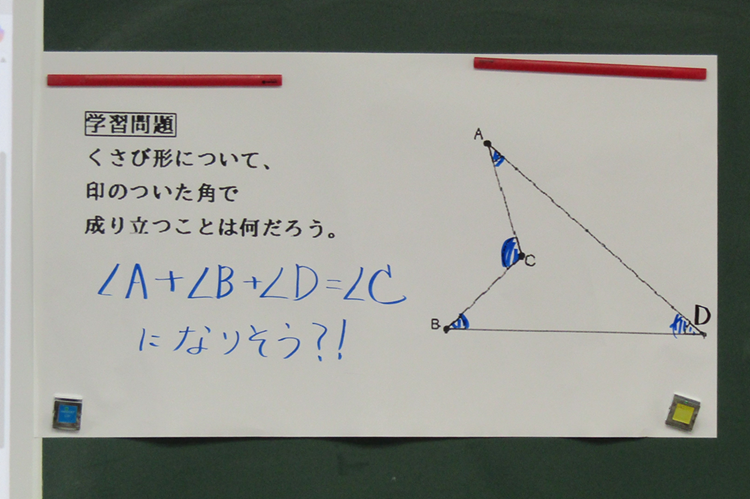 学習問題
くさび形について、
印のついた角で
成り立つことは何だろう。
∠A+∠B+∠D=∠C
になりそう?!
A
C
B
D